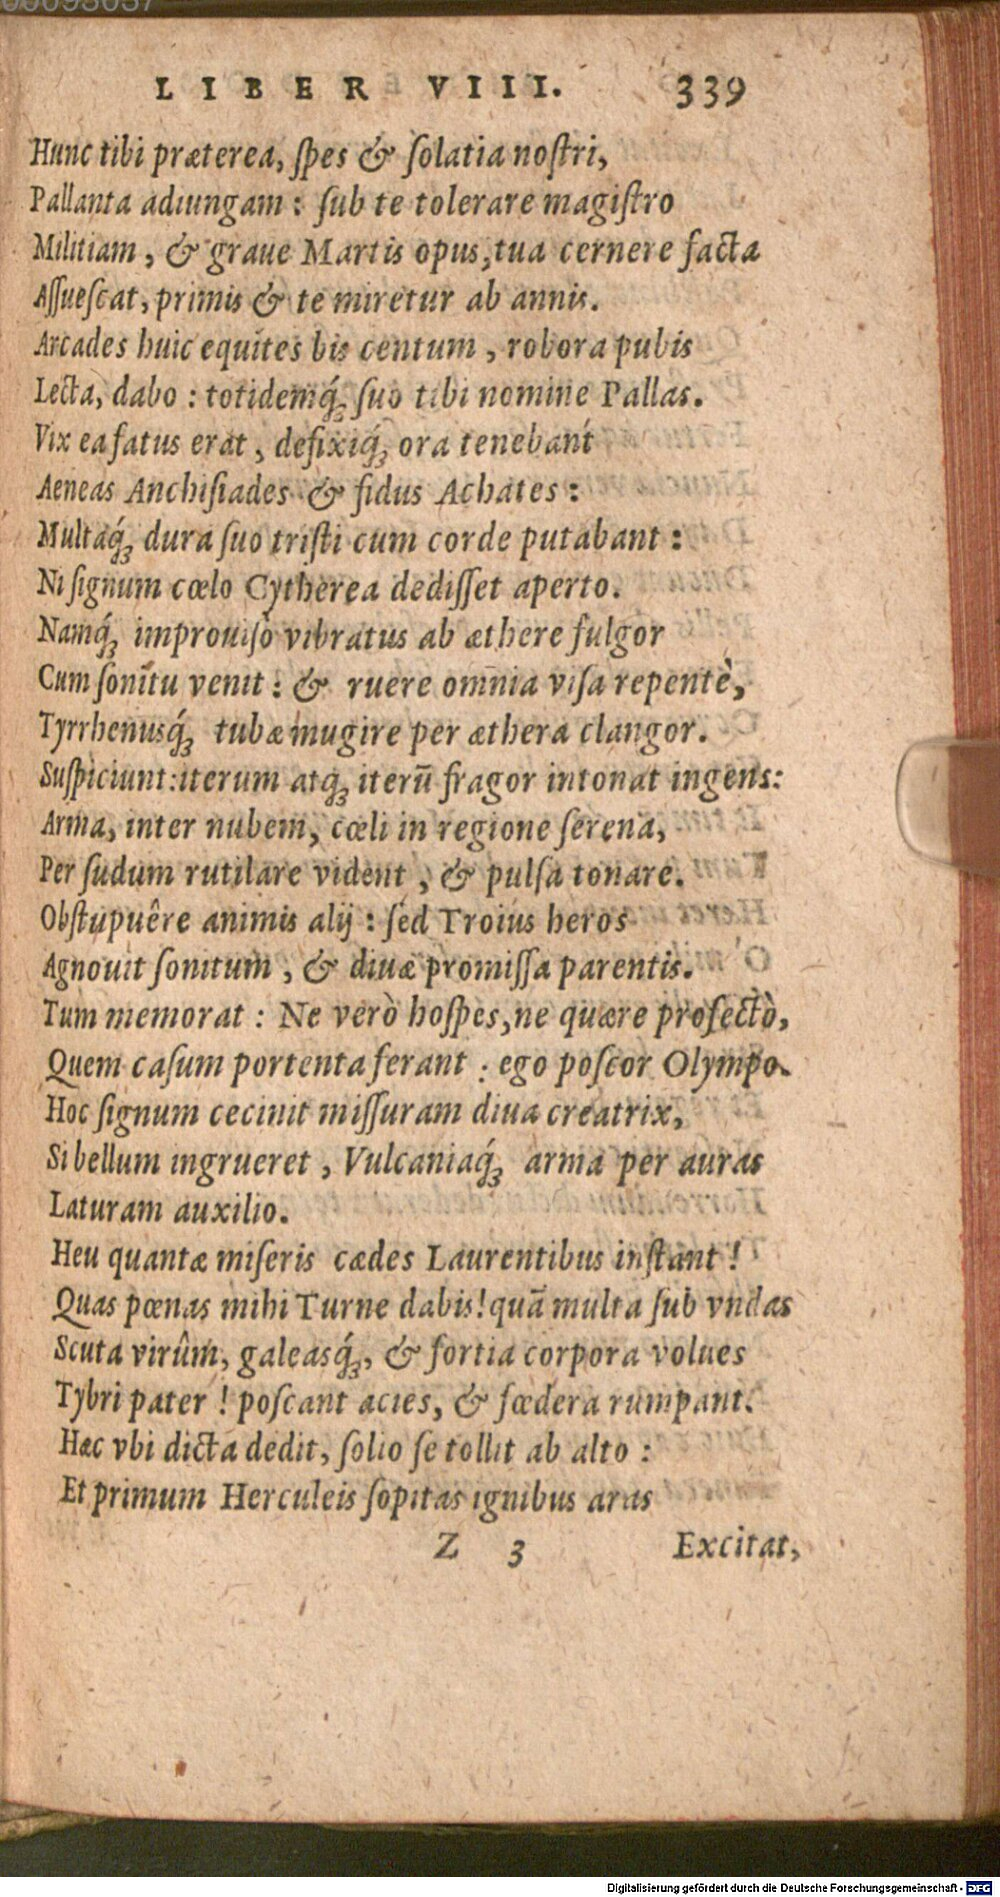 LIBER VIII. 339
Hunc tibi præterea, ſpes & ſolatia noſtri,
Pallanta adiungam : ſub te tolerare magiſtro
Militiam, & graue Martis opus, tua cernere facta
Aſſueſcat, primis & te miretur ab annis.
Arcades huic equites bis centum, robora pubis
Lecta, dabo : totidemq́; ſuo tibi nomine Pallas.
Vix ea fatus erat, defixiq́; ora tenebant
Aeneas Anchiſiades & fidus Achates :
Multaq́; dura ſuo triſti cum corde putabant :
Ni ſignum cœlo Cytherea dediſſet aperto.
Namq́; improuiſò vibratus ab æthere fulgor
Cum ſonitu venit : & ruere omnia viſa repentè,
Tyrrhenusq́; tubæ mugire per æthera clangor.
Suſpiciunt: iterum atq́; iterū fragor intonat ingens:
Arma, inter nubem, cœli in regione ſerena,
Per ſudum rutilare vident, & pulſa tonare.
Obſtupuêre animis alij : ſed Troius heros
Agnouit ſonitum, & diuæ promiſſa parentis.
Tum memorat : Ne verò hoſpes, ne quære profectò,
Quem caſum portenta ferant : ego poſcor Olympo.
Hoc ſignum cecinit miſſuram diua creatrix,
Si bellum ingrueret, Vulcaniaq́; arma per auras
Laturam auxilio.
Heu quantæ miſeris cædes Laurentibus inſtant !
Quas pœnas mihi Turne dabis! quā multa ſub vndas
Scuta virûm, galeasq́;, & fortia corpora volues
Tybri pater ! poſcant acies, & fœdera rumpant.
Hæc vbi dicta dedit, ſolio ſe tollit ab alto :
Et primum Herculeis ſopitas ignibus aras
Z 3 Excitat,
Digitalisierung gefördert durch die Deutsche Forschungsgemeinschaft - DFG